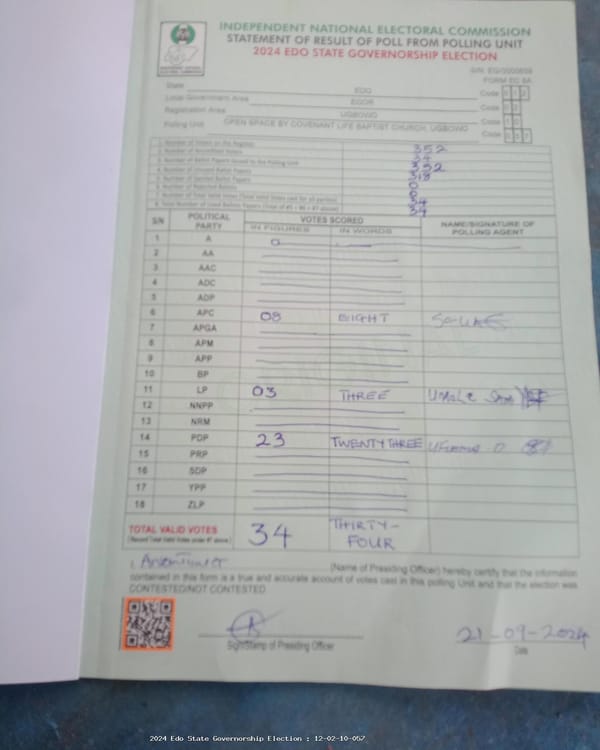 INDEPENDENT NATIONAL ELECTORAL COMMISSION
STATEMENT OF RESULT OF POLL FROM POLLING UNIT
2024 EDO STATE GOVERNORSHIP ELECTION
FORM EC 8A
State EDO Code 12
Local Government Area EGOR Code 02
Registration Area UGBOWO Code 10
Polling Unit OPEN SPACE BY COVENANT LIFE BAPTIST CHURCH, UGBOWO Code 057
1. Number of Voters on the Register 352
2. Number of Accredited Voters 34
3. Number of Ballot Papers Issued to the Polling Unit 352
4. Number of Unused Ballot Papers 318
5. Number of Spoiled Ballot Papers 0
6. Number of Rejected Ballots 0
7. Number of Total Valid Votes (Total valid votes cast for all parties) 34
8. Total Number of Used Ballot Papers (Total of #5 + #6 + #7 above) 34
S/N POLITICAL PARTY VOTES SCORED NAME/SIGNATURE OF POLLING AGENT
IN FIGURES IN WORDS
1 A 0
2 AA
3 AAC
4 ADC
5 ADP
6 APC 08 EIGHT
7 APGA
8 APM
9 APP
10 BP
11 LP 03 THREE
12 NNPP
13 NRM
14 PDP 23 TWENTY THREE
15 PRP
16 SDP
17 YPP
18 ZLP
TOTAL VALID VOTES 34 THIRTY-FOUR
(Record Total Valid Votes under #7 above)
I, (Name of Presiding Officer) hereby certify that the information
contained in this form is a true and accurate account of votes cast in this polling Unit and that the election was
CONTESTED/NOT CONTESTED
21-09-2024
Sign/Stamp of Presiding Officer Date
2024 Edo State Governorship Election : 12-02-10-057